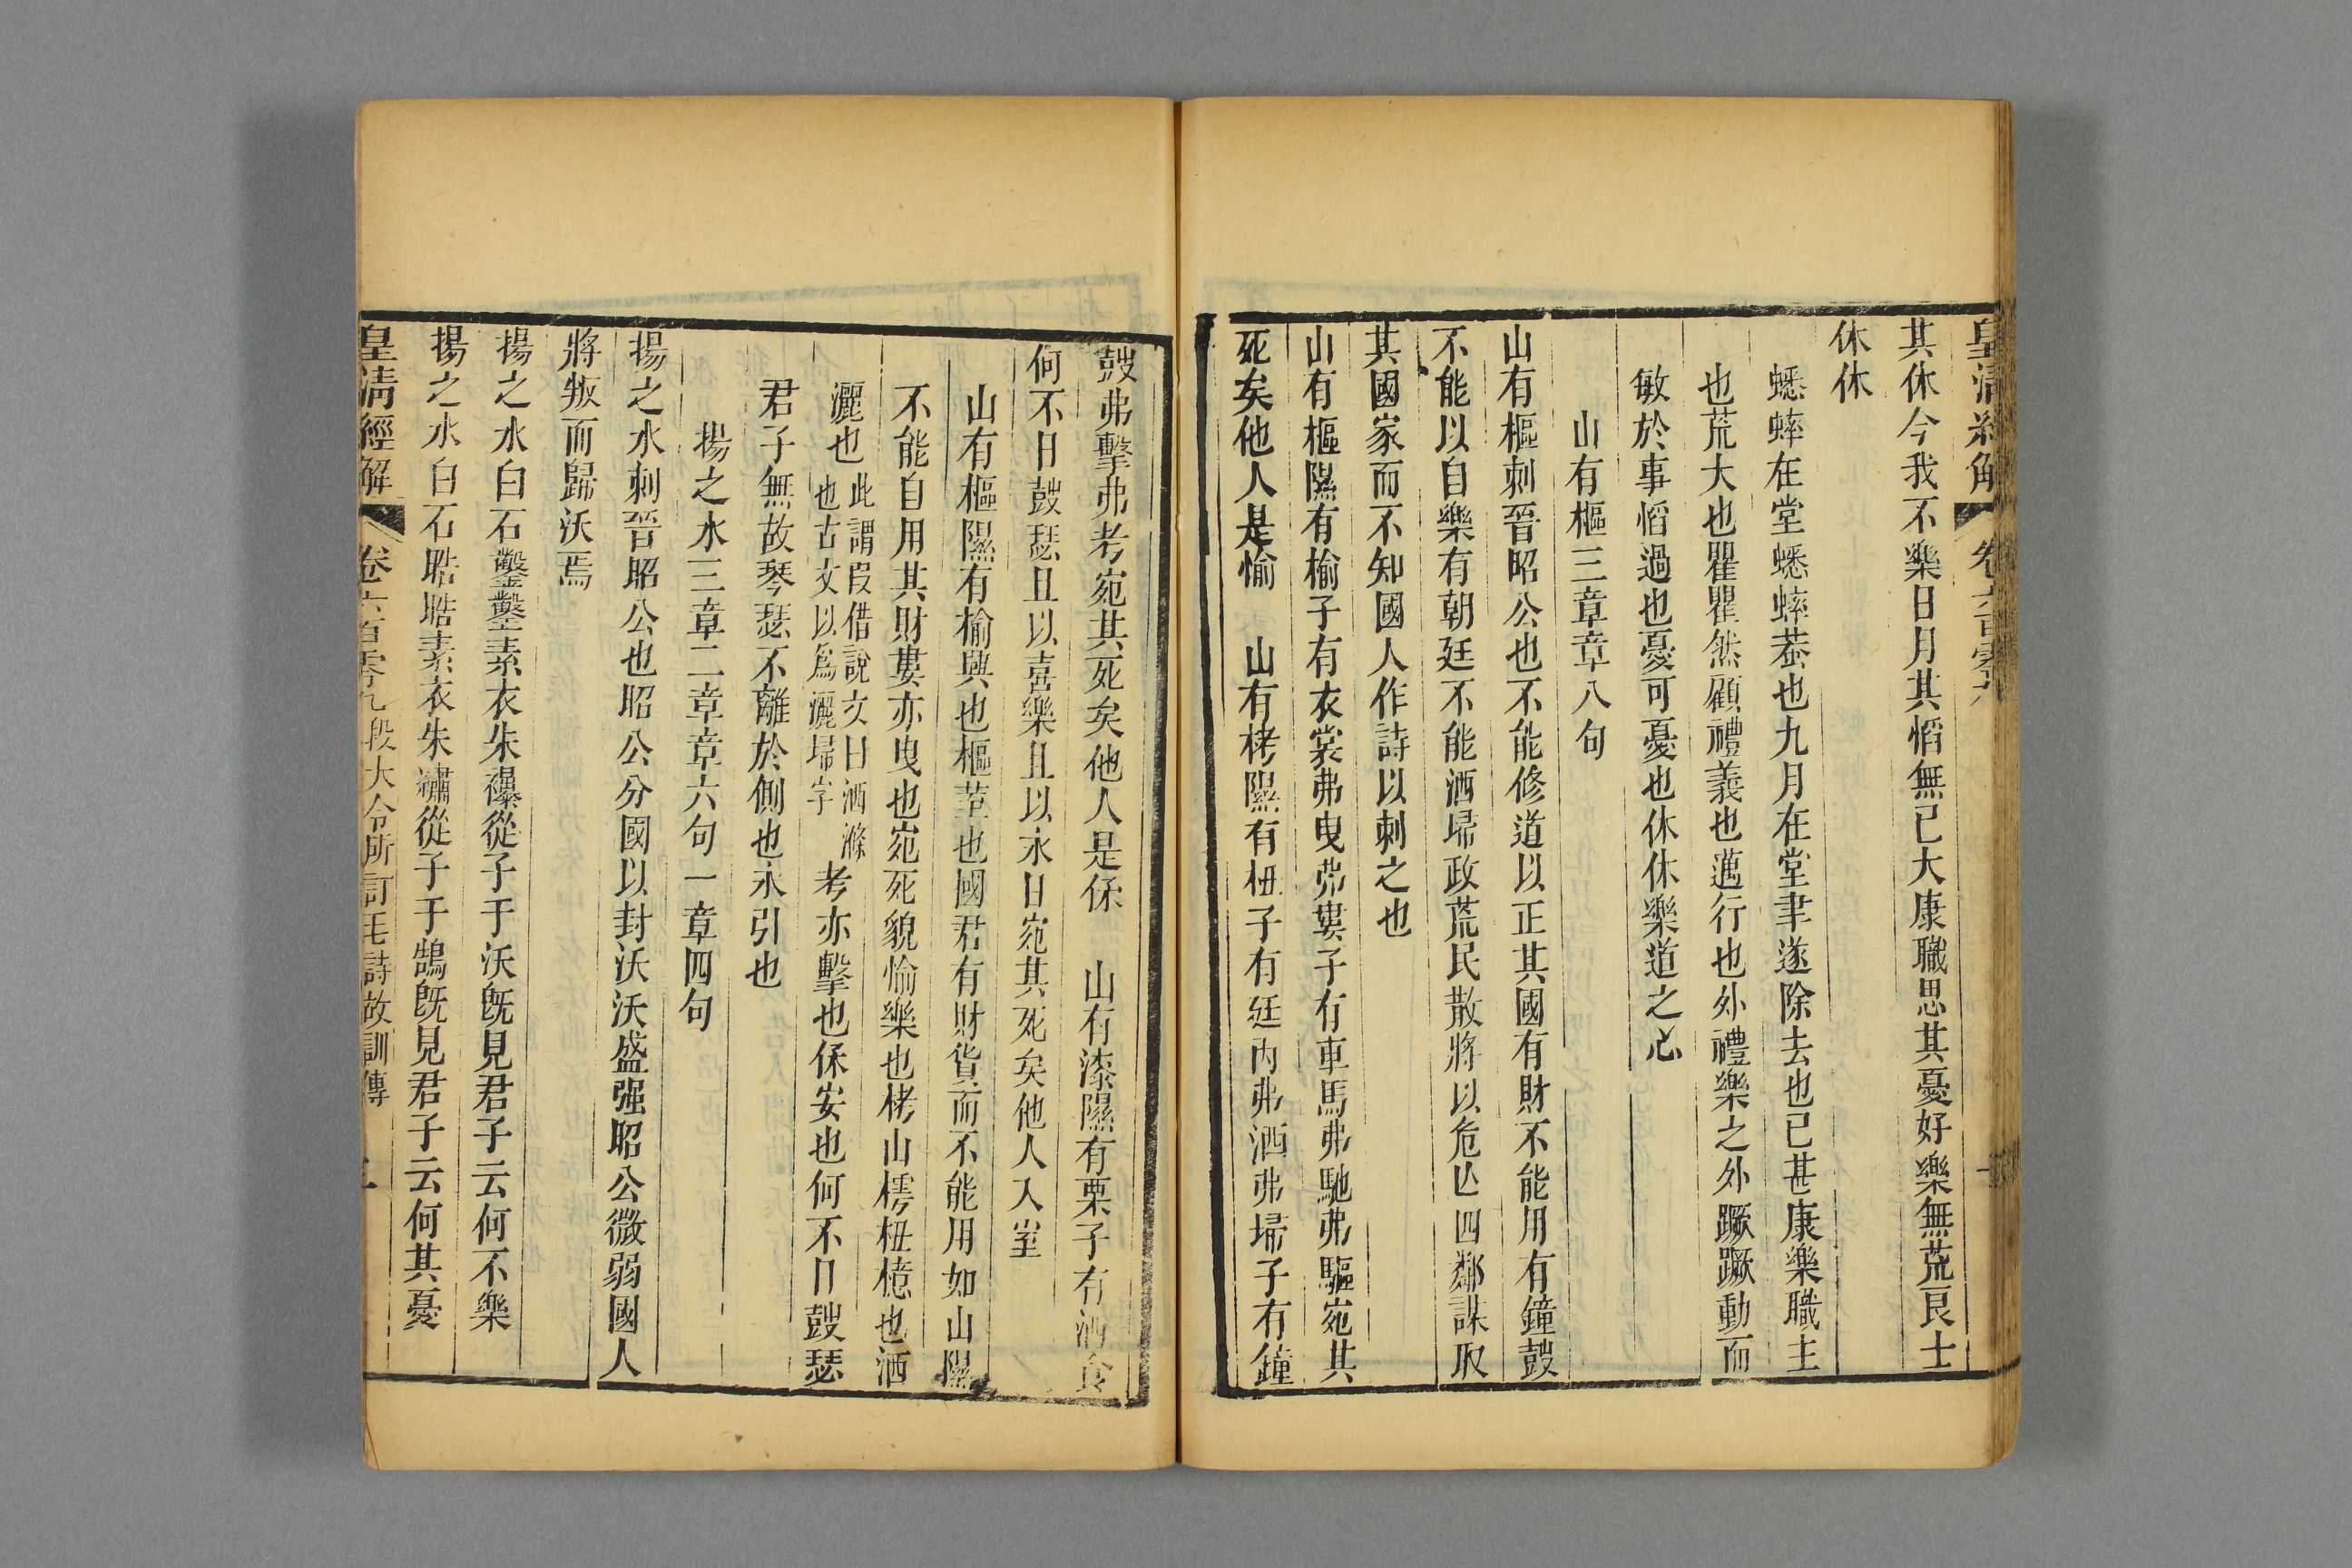 皇清經解 卷六百零九
其休今我不樂日月其慆無已大康職思其憂好樂無荒良士
休休
蟋蟀在堂蟋蟀蛬也九月在堂聿遂除去也已甚康樂職主
也荒大也瞿瞿然顧禮義也邁行也外禮樂之外蹶蹶動而
敏於事慆過也憂可憂也休休樂道之心
山有樞三章章八句
山有樞刺晉昭公也不能修道以正其國有財不能用有鐘鼓
不能以自樂有朝廷不能洒埽政荒民散將以危亾四鄰謀取
其國家而不知國人作詩以刺之也
山有樞隰有榆子有衣裳弗曳弗婁子有車馬弗馳弗驅宛其
死矣他人是愉　山有栲隰有杻子有廷內弗洒弗埽子有鐘
鼓弗擊弗考宛其死矣他人是保　山有漆隰有栗子有酒食
何不日鼓瑟且以喜樂且以永日宛其死矣他人入室
山有樞隰有榆興也樞荎也國君有財貨而不能用如山隰
不能自用其財婁亦曳也宛死貌愉樂也栲山樗杻檍也洒
灑也此謂叚借說文曰洒滌也古文以爲灑埽字考亦擊也保安也何不日鼓瑟
君子無故琴瑟不離於側也永引也
揚之水三章二章章六句一章四句
揚之水刺晉昭公也昭公分國以封沃沃盛强昭公微弱國人
將叛而歸沃焉
揚之水白石鑿鑿素衣朱襮從子于沃旣見君子云何不樂
揚之水白石晧晧素衣朱繡從子于鵠旣見君子云何其憂
皇清經解 卷六百零九段大令所訂毛詩故訓傳